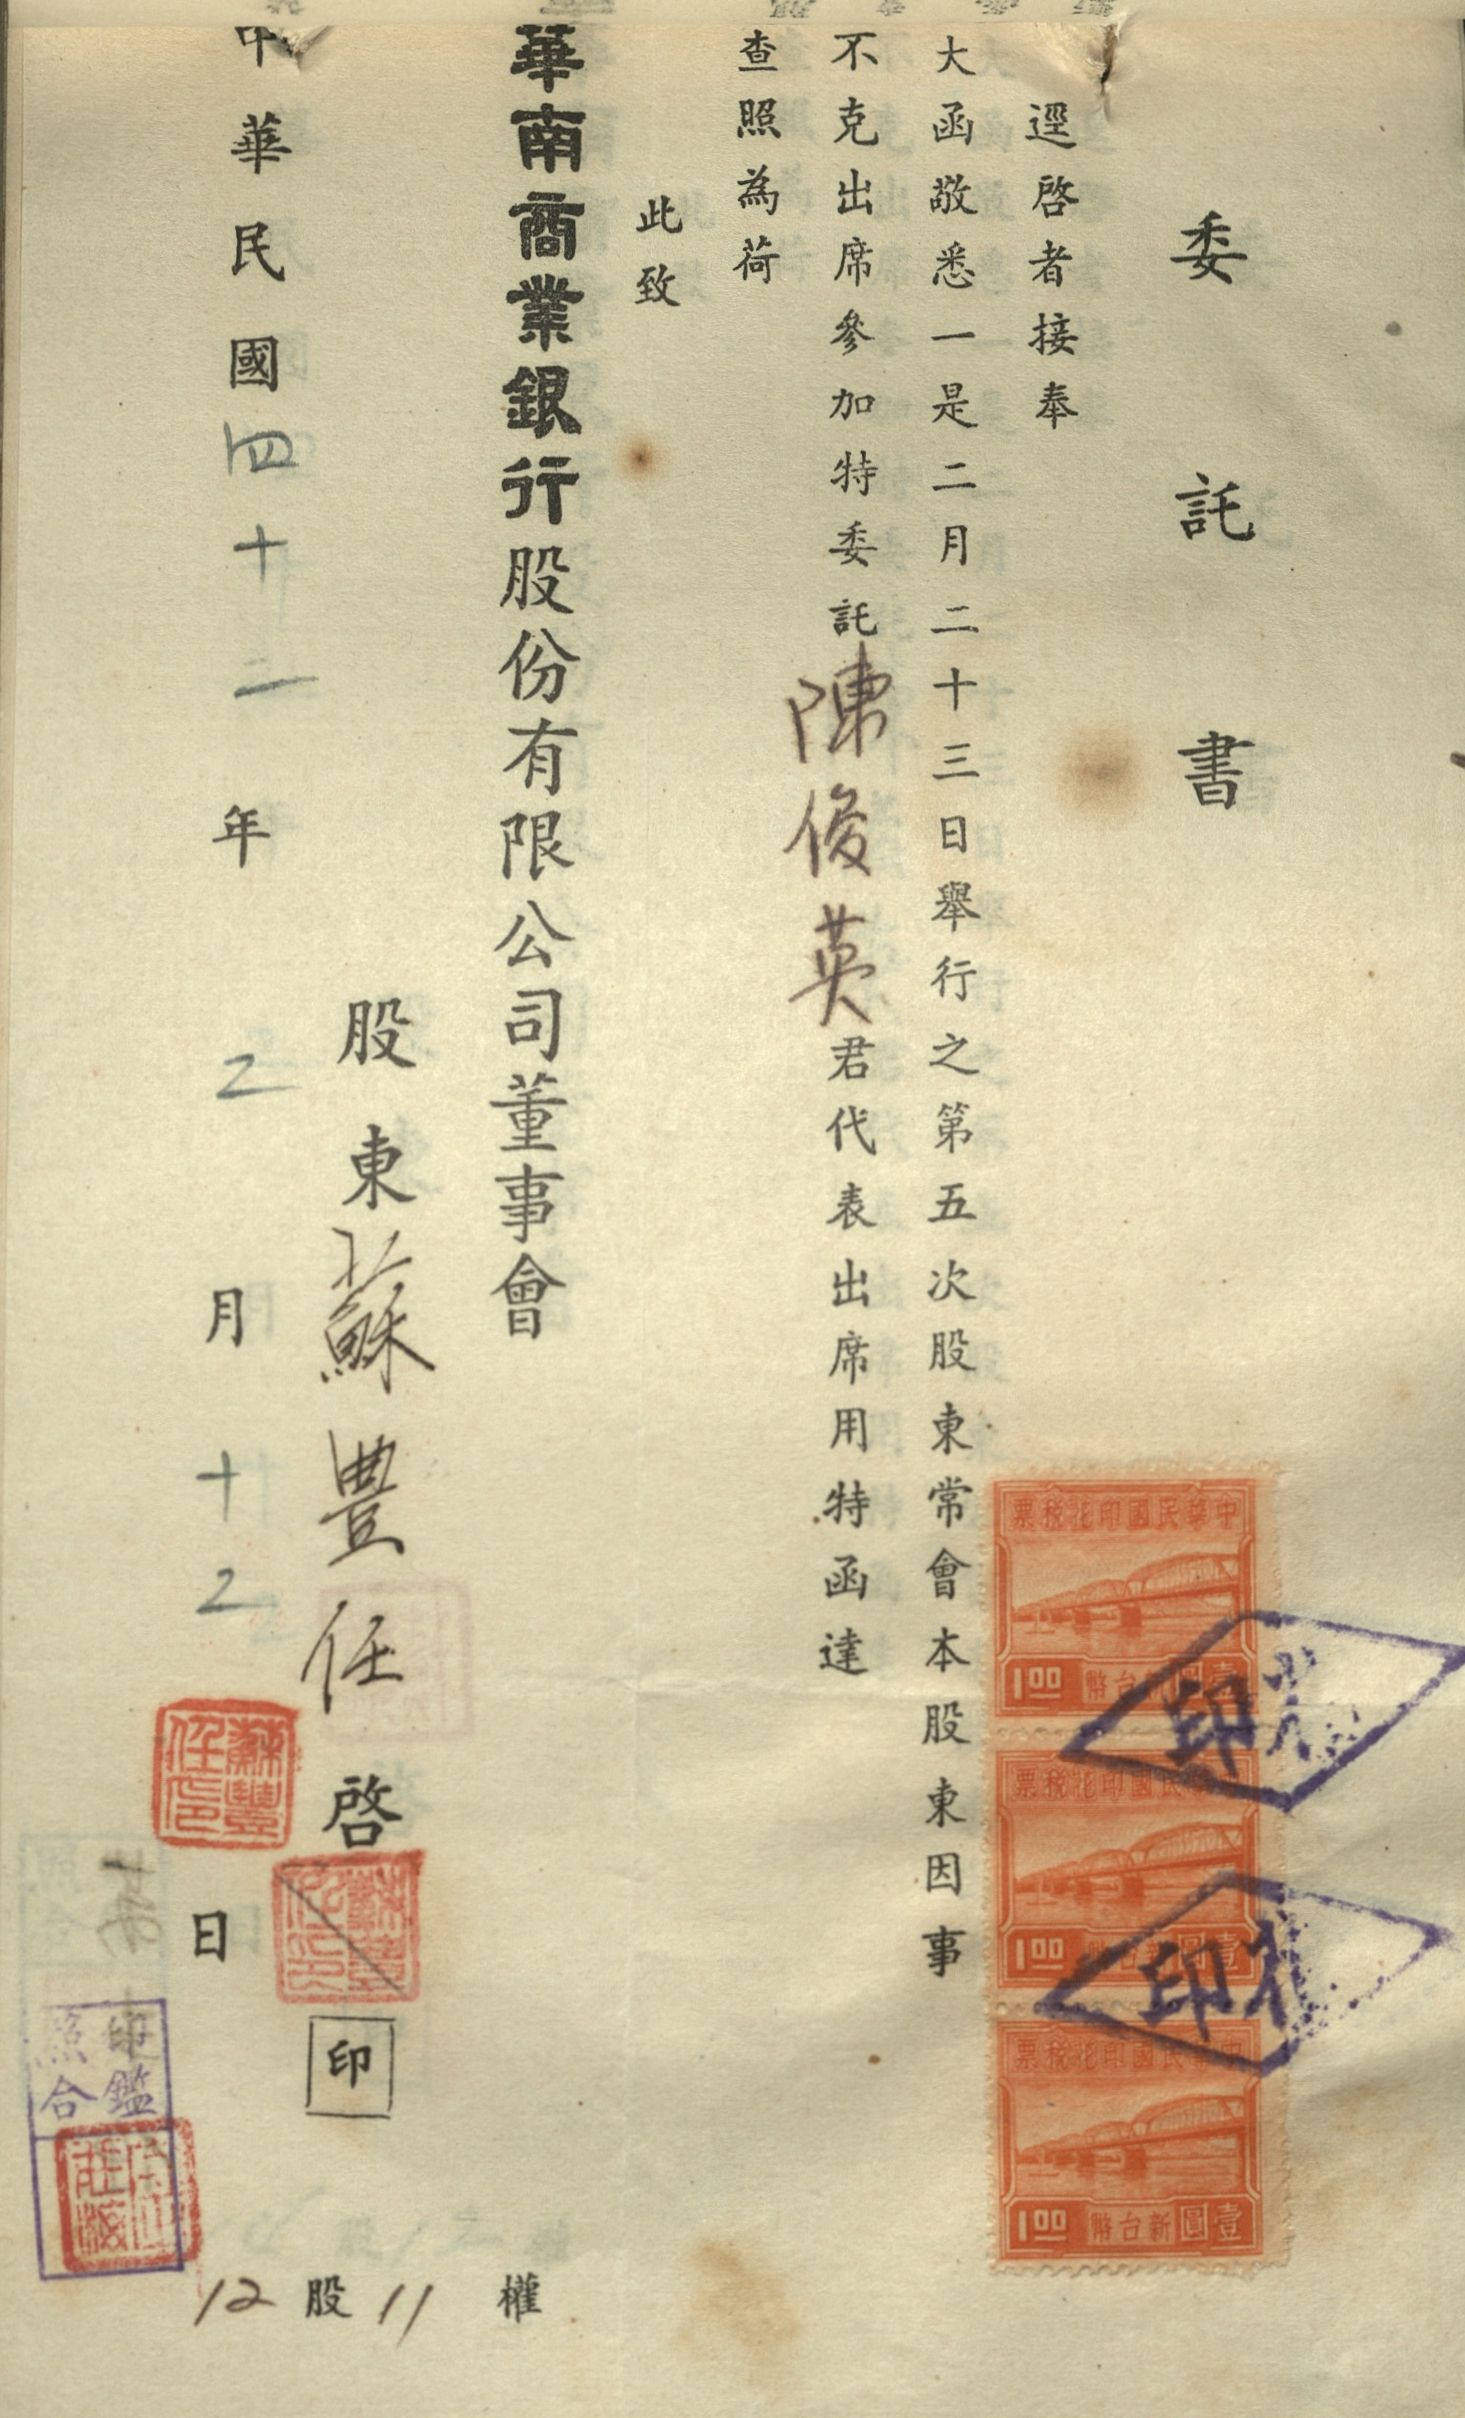 委託書
逕啓者接奉
大函敬悉一是二月二十三日舉行之第五次股東常會本股東因事
不克出席參加特委託陳俊英君代表出席用特函達
查照為荷
此致
華南商業銀行股份有限公司董事會
股東蘇豐任啓
印
中華民國四十二年2月十2日
12股11權
蘇豐任印
蘇豐任印
印鑑照合
中華民國印花稅票
新台幣壹圓
1.00
中華民國印花稅票
新台幣壹圓
1.00
中華民國印花稅票
新台幣壹圓
1.00